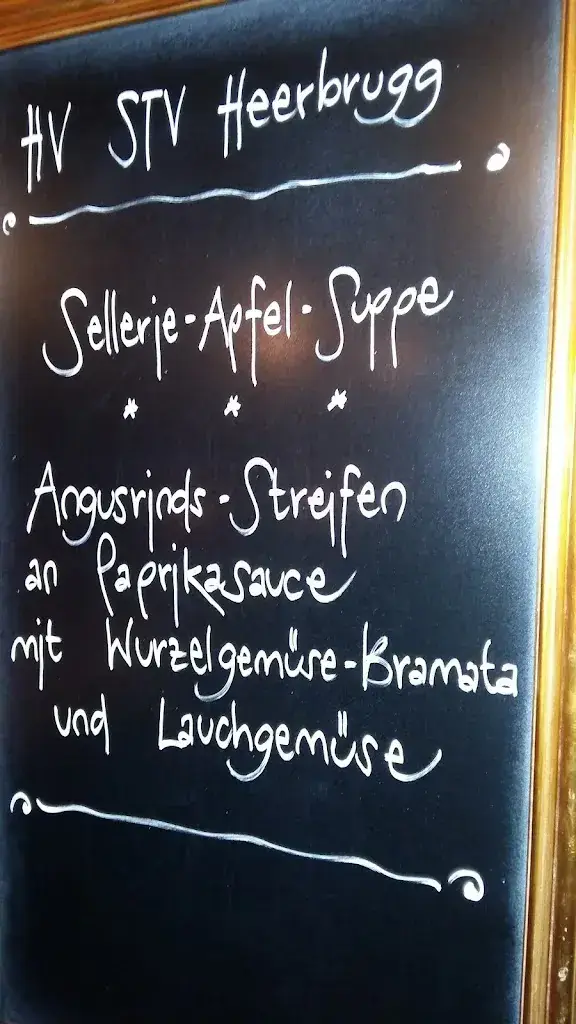 HV STV Heerbrugg
Sellerie-Apfel-Suppe
* * *
Angusrinds-Streifen
an Paprikasauce
mit Wurzelgemüse-Bramata
und Lauchgemüse